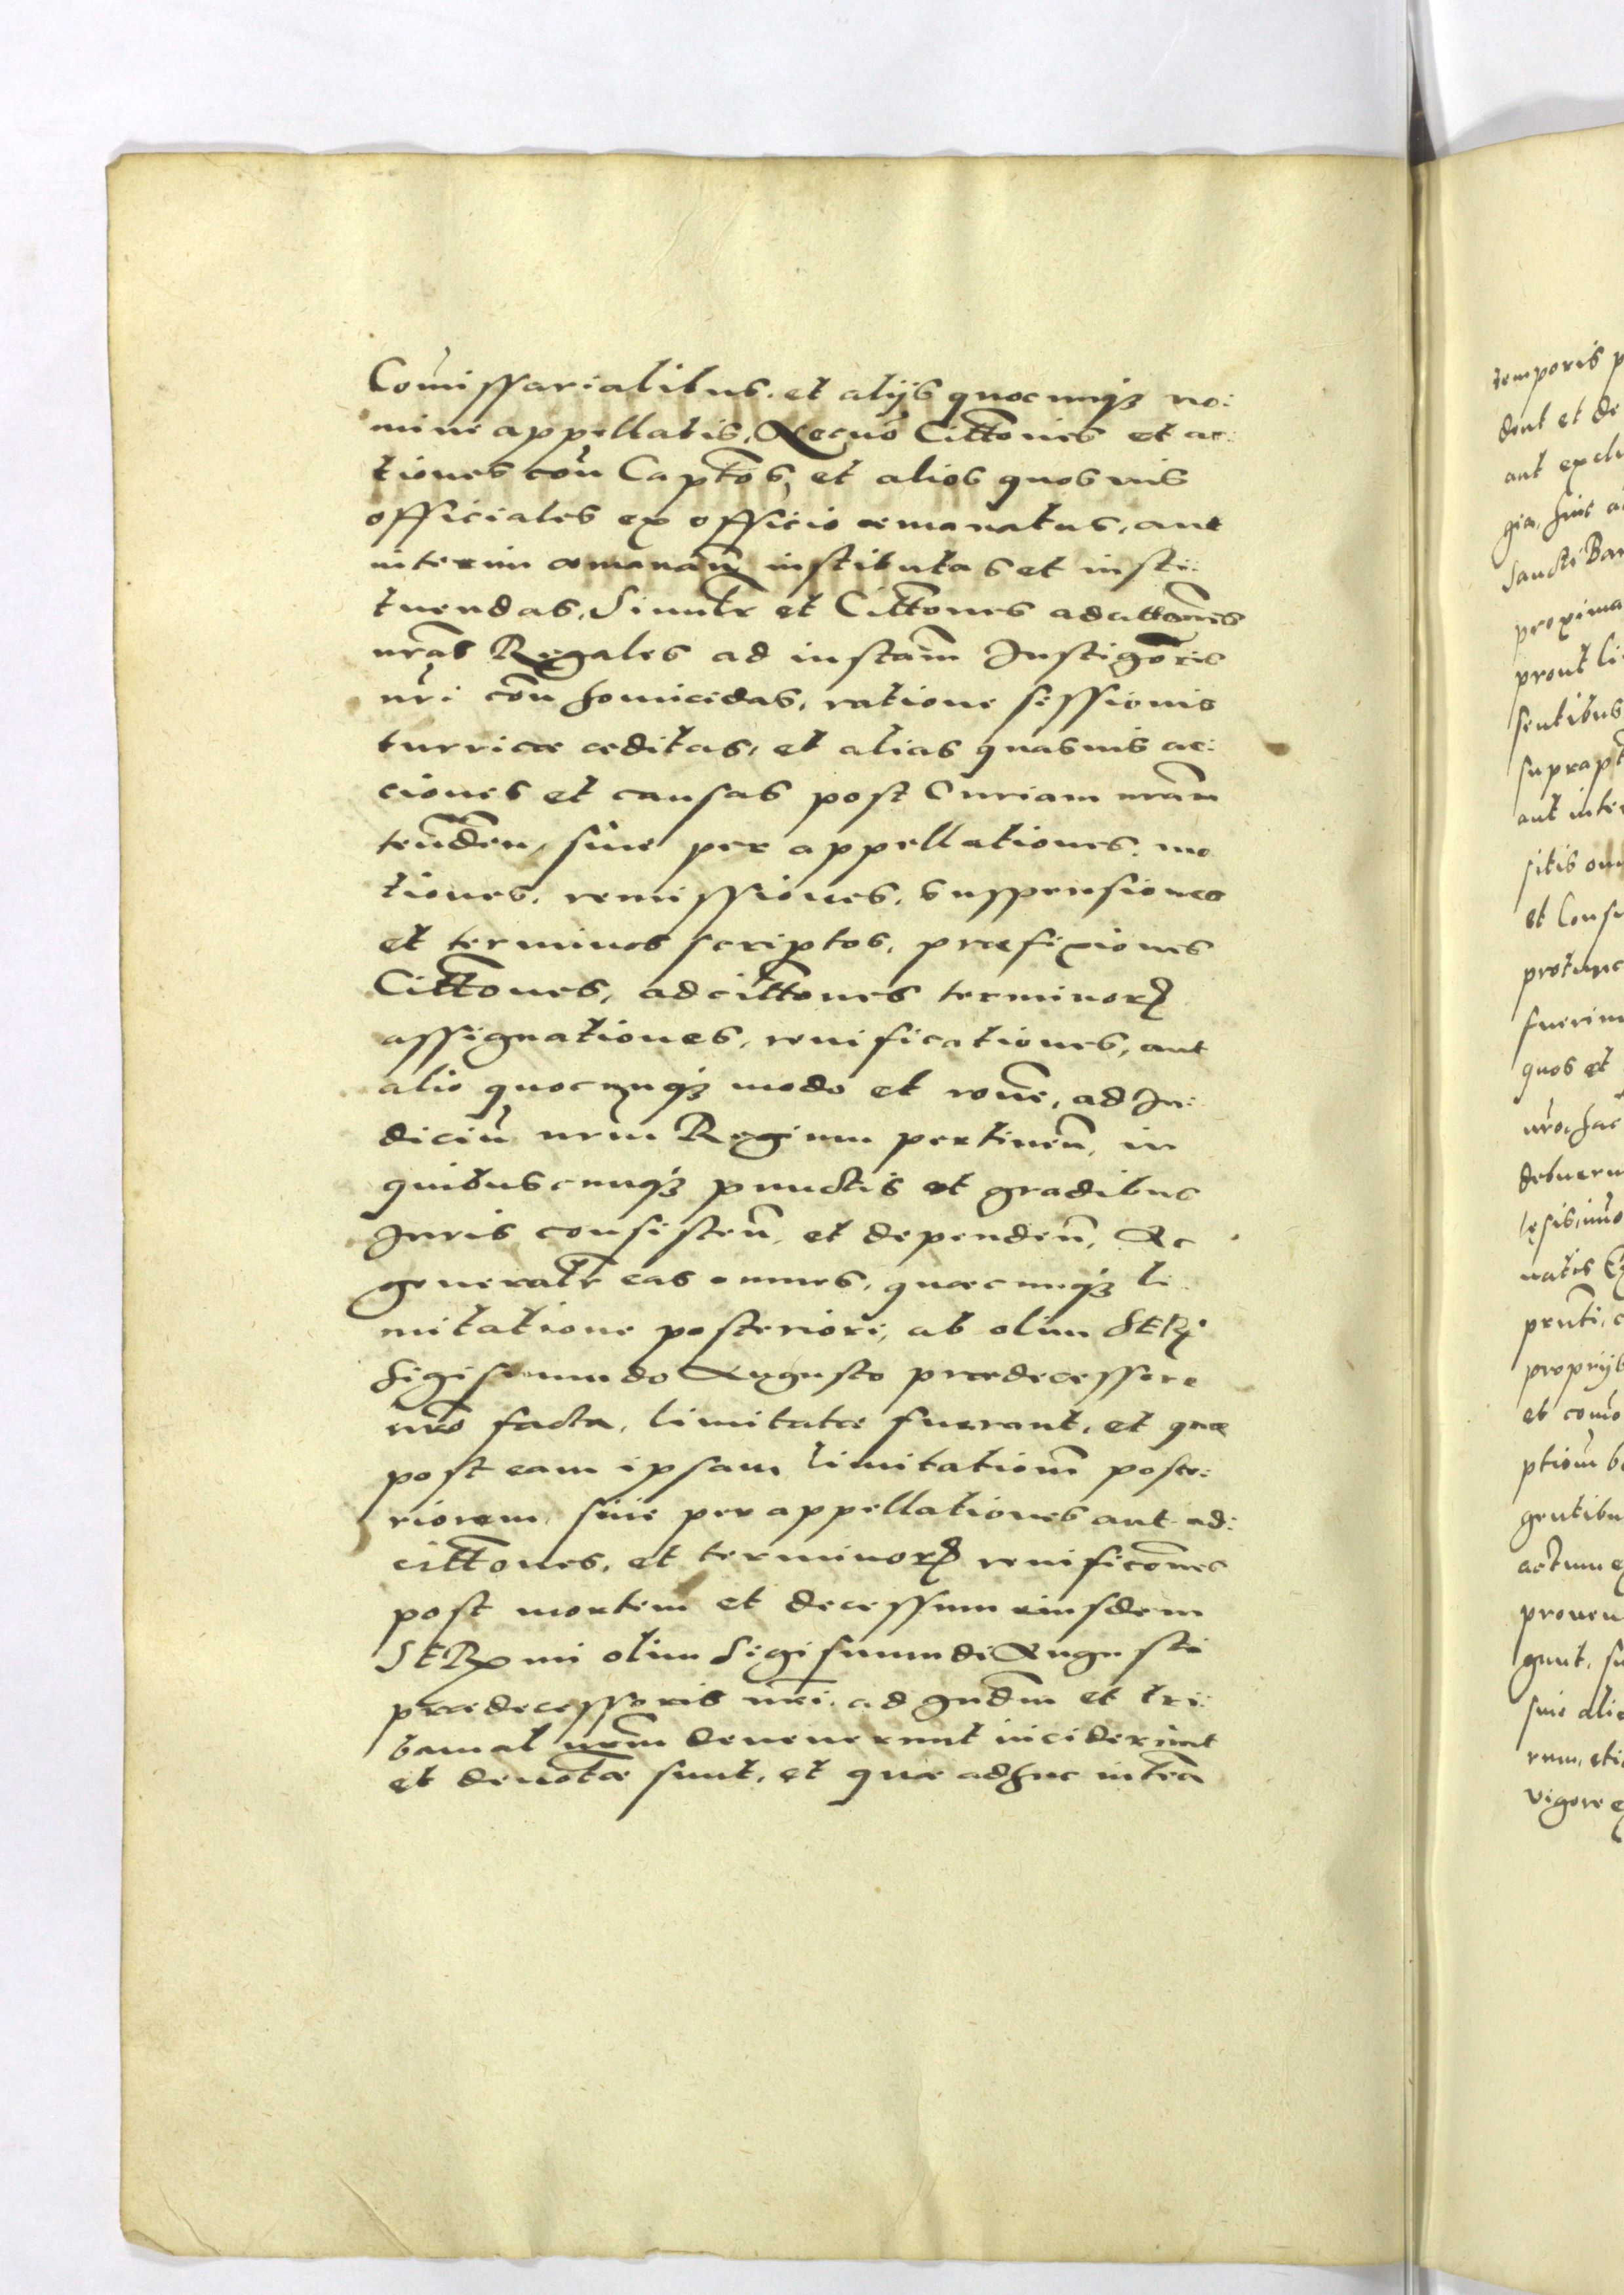 Com̃issarialibus. et alijs quocunqꝫ no:
mine appellatis, Necnõ Citt̃ones et ac:
tiones cõn Capt̃os, et alios quosuis
officiales ex officio æmanatus, aut
interim æmanañ institutas et insti:
tuendas, Simil̃r et Citt̃ones adcitt̃ones
nr̃as Regales ad instãm Instigõris
nr̃i cõn homicidas, ratione sessionis
turricæ æditas, et alias quasuis ac:
ciones et causas post Curiam nr̃am
teñdeñ, siue per appellationes. mo
tiones, remissiones, suspensiones
et terminos scriptos, præfixiones
Citt̃ones, adcitt̃ones terminorꝝ
assignationes, reuificationes, aut
alio quocunqꝫ modo et rõne, ad Iu:
diciũ nr̃m Regium pertineñ, in
quibuscunqꝫ punctis et gradibus
Iuris consisteñ, et dependeñ, Ac
generalr̃ eas omnes, quæcunqꝫ li
mitatione posteriori, ab olim SERꝫ
Sigismundo Augusto prædecessore
nr̃o facta, limitatæ fuerant, et quæ
post eam ipsam limitationẽ poste:
riorem, siue per appellationes aut ad:
citt̃ones, et terminorꝝ reuificõnes
post mortem et decessum eiusdem
SERmi olim Sigismundi Augusti
prædecessoris nr̃i. ad Iudm̃ et tri:
bunal nr̃m deuenerunt inciderunt
et deuol̃tæ sunt, et quæ adhuc interã
temporis p
dent et de
aut exclu
gia, hinc a
Sancti Bar
proxima
prout li
sentibus
suprapt̃
aut inter
sitis om
et Consu
protunc
fuerin
quos et
nr̃o, hac
debueru
natis
prnti, c
proprijs
et com̃o
gentibu
actum e
proueni
gunt, su
siue alio
rum, eti
vigore e